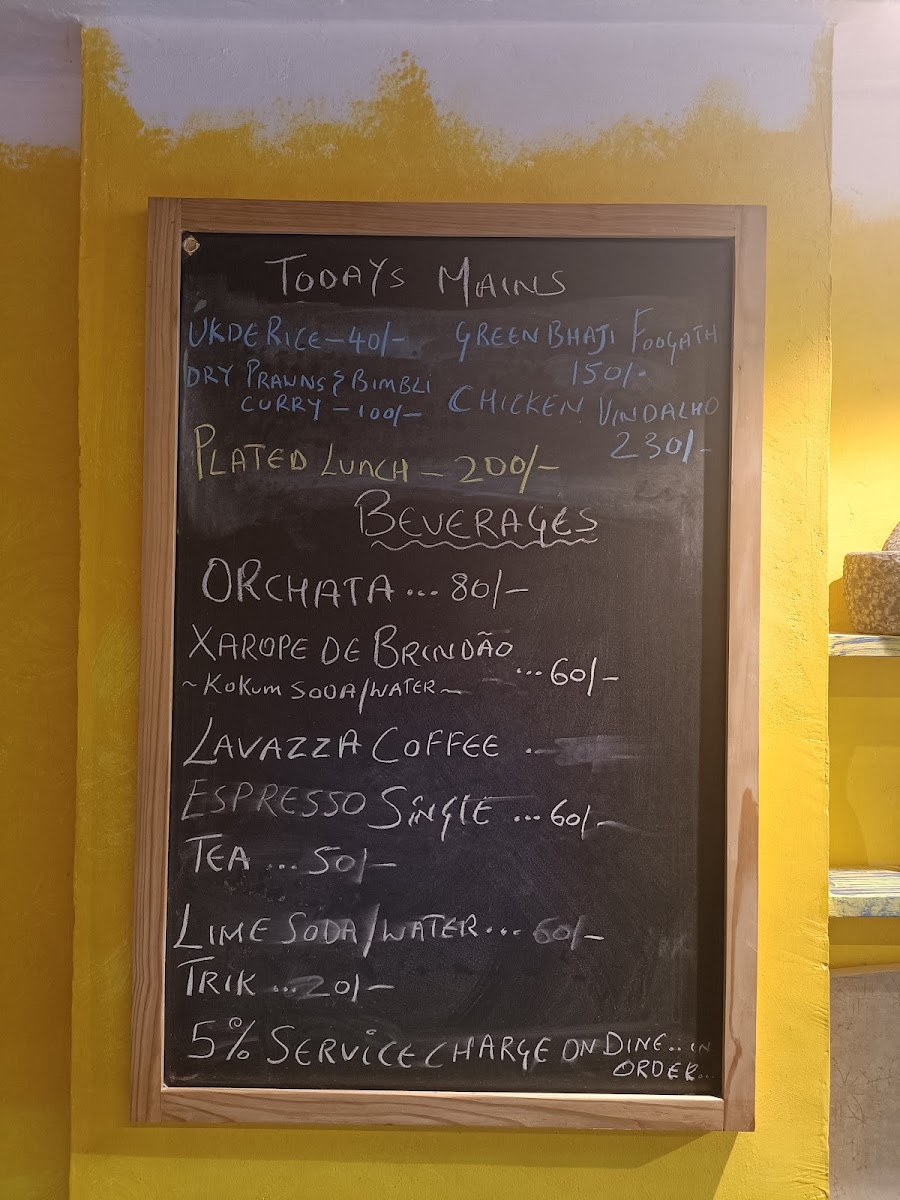 TODAYS MAINS
UKDE RICE - 40/-
DRY PRAWNS & BIMBLI
CURRY - 100/-
GREEN BHAJI FOOGATH
150/-
CHICKEN VINDALHO
230/-
PLATED LUNCH - 200/-
BEVERAGES
ORCHATA ... 80/-
XAROPE DE BRINDÃO ... 60/-
~ KOKUM SODA/WATER ~
LAVAZZA COFFEE
ESPRESSO SINGLE ... 60/-
TEA ... 50/-
LIME SODA/WATER ... 60/-
TRIK ... 20/-
5% SERVICE CHARGE ON DINE.. IN
ORDER...